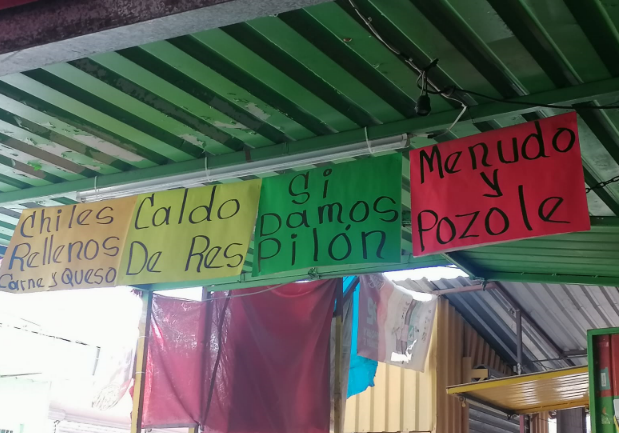 Chiles
Rellenos
Carne y Queso
Caldo
De Res
Si
Damos
Pilón
Menudo
y
Pozole